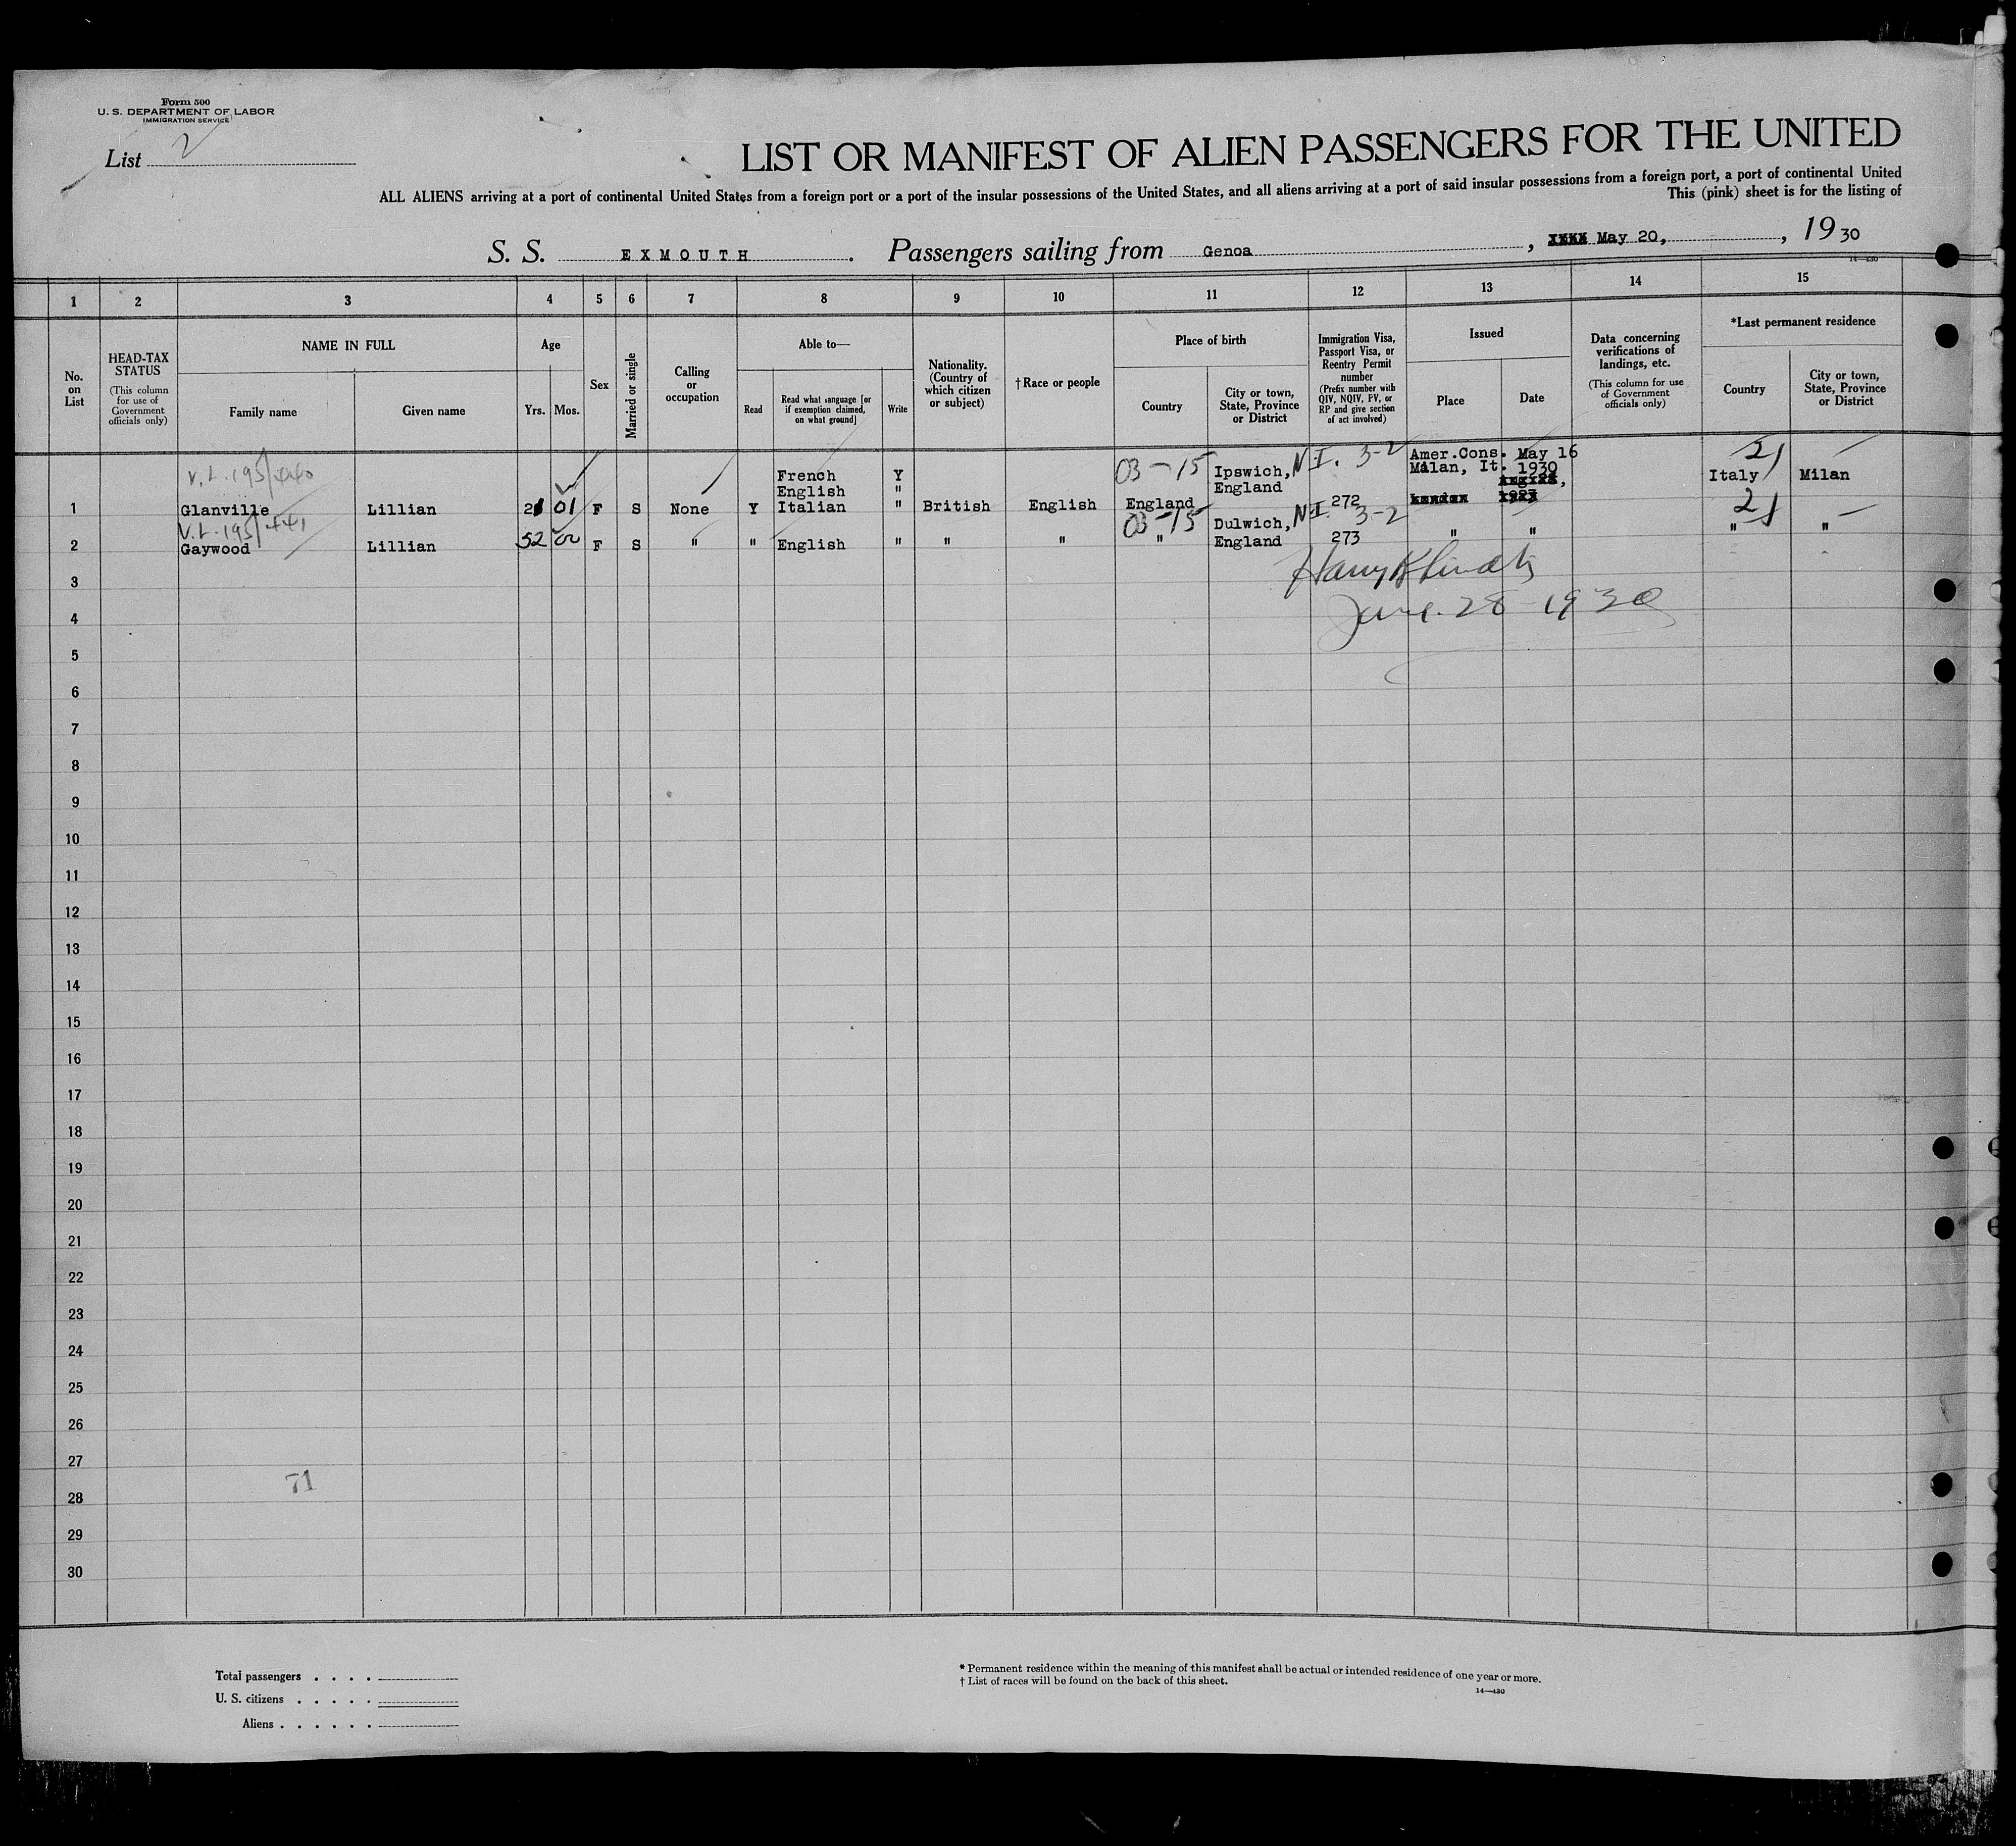 Form 500
U. S. DEPARTMENT OF LABOR
IMMIGRATION SERVICE
List 2
LIST OR MANIFEST OF ALIEN PASSENGERS FOR THE UNITED
ALL ALIENS arriving at a port of continental United States from a foreign port or a port of the insular possessions of the United States, and all aliens arriving at a port of said insular possessions from a foreign port, a port of continental United
This (pink) sheet is for the listing of
S. S. EXMOUTH. Passengers sailing from Genoa, May 20, , 1930
14—430
1 2 3 4 5 6 7 8 9 10 11 12 13 14 15
No. on List
HEAD-TAX STATUS (This column for use of Government officials only)
NAME IN FULL
Family name
Given name
Age
Yrs. Mos.
Sex
Married or single
Calling or occupation
Able to—
Read
Read what language [or if exemption claimed, on what ground]
Write
Nationality. (Country of which citizen or subject)
† Race or people
Place of birth
Country
City or town, State, Province or District
Immigration Visa, Passport Visa, or Reentry Permit number (Prefix number with QIV, NQIV, PV, or RP and give section of act involved)
Issued
Place
Date
Data concerning verifications of landings, etc. (This column for use of Government officials only)
*Last permanent residence
Country
City or town, State, Province or District
V.L. 195/440 French Y 03-15 Ipswich, N.I. 3-2 Amer.Cons. May 16 21
English " England Milan, It. 1930 Italy Milan
1 Glanville Lillian 21 01 F S None Y Italian " British English England 272
V.L. 195/441 03-15 Dulwich, N.I. 3-2 21
2 Gaywood Lillian 52 00 F S " " English " " " " England 273 " " " "
3
June. 28-1930
4
5
6
7
8
9
10
11
12
13
14
15
16
17
18
19
20
21
22
23
24
25
26
27
71
28
29
30
Total passengers . . . .
U. S. citizens . . . . .
Aliens . . . . . .
* Permanent residence within the meaning of this manifest shall be actual or intended residence of one year or more.
† List of races will be found on the back of this sheet.
14—430